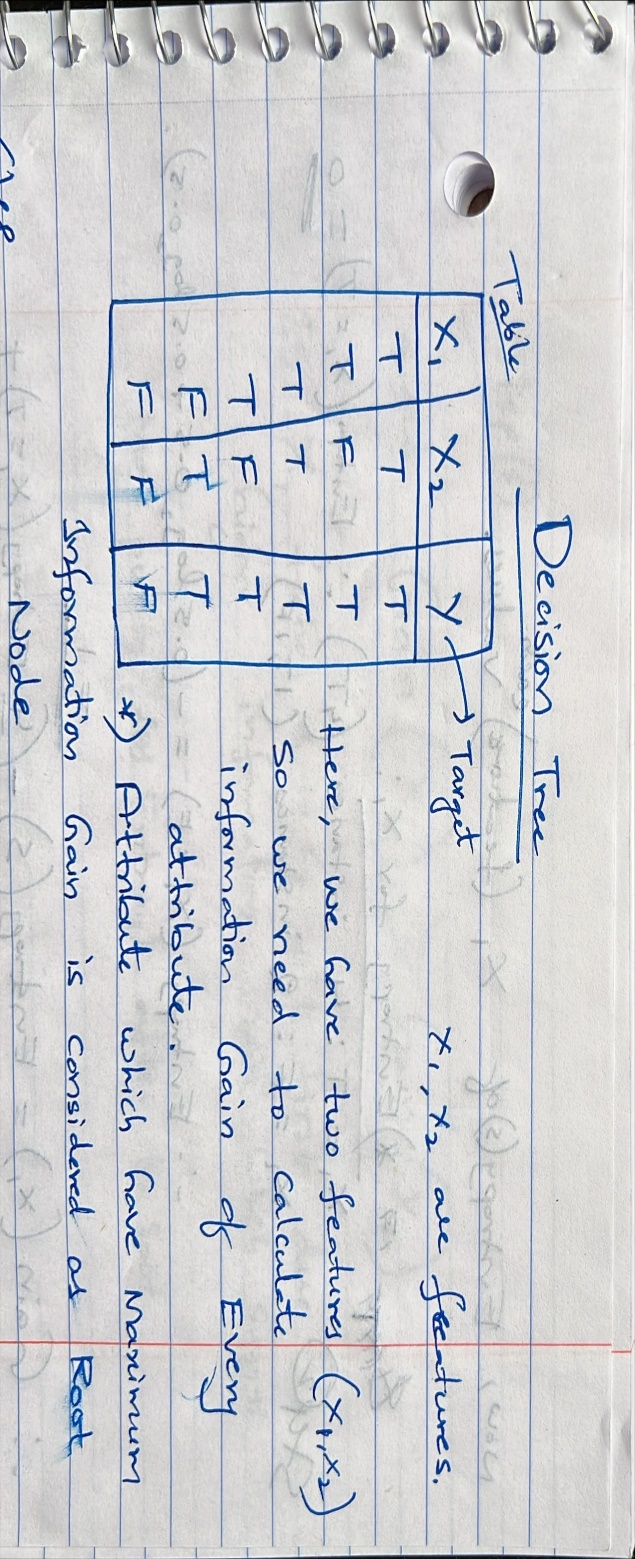 Decision Tree
Table
X1 X2 Y → Target
T T T
T F T
T T T
T F T
F T T
F F F
X1, X2 are features.
Here, we have two features (X1, X2)
So we need to calculate
information Gain of Every
attribute.
*) Attribute which have Maximum
Information Gain is considered as Root
Node